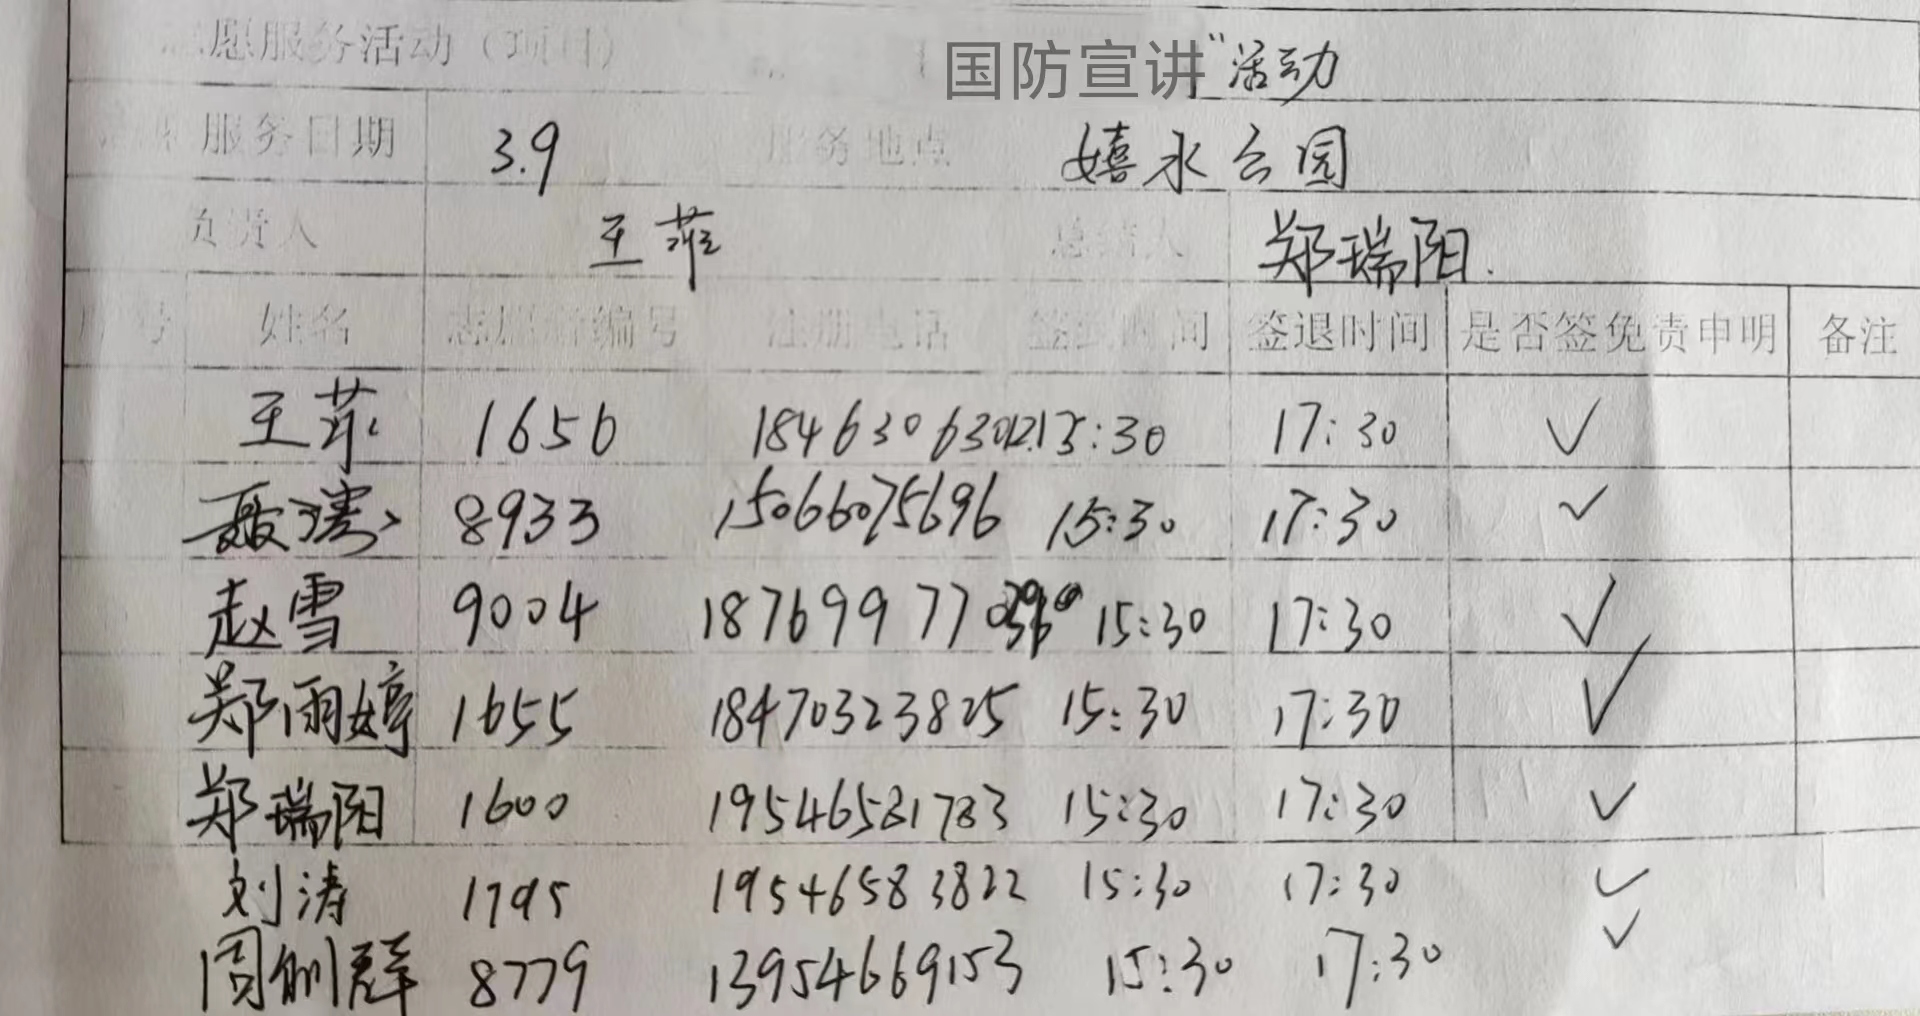 志愿服务活动（项目） 国防宣讲”活动
志愿服务日期 3.9 服务地点 嬉水公园
负责人 王菲 总结人 郑瑞阳.
序号 姓名 志愿者编号 注册电话 签到时间 签退时间 是否签免责申明 备注
王菲 1656 15:30 17:30 ✓
8933 15066075696 15:30 17:30 ✓
赵雪 9004 15:30 17:30 ✓
郑雨婷 1655 18470323825 15:30 17:30 ✓
郑瑞阳 1600 19546581783 15:30 17:30 ✓
刘涛 1795 19546583822 15:30 17:30 ✓
周 群 8779 13954669153 15:30 17:30 ✓